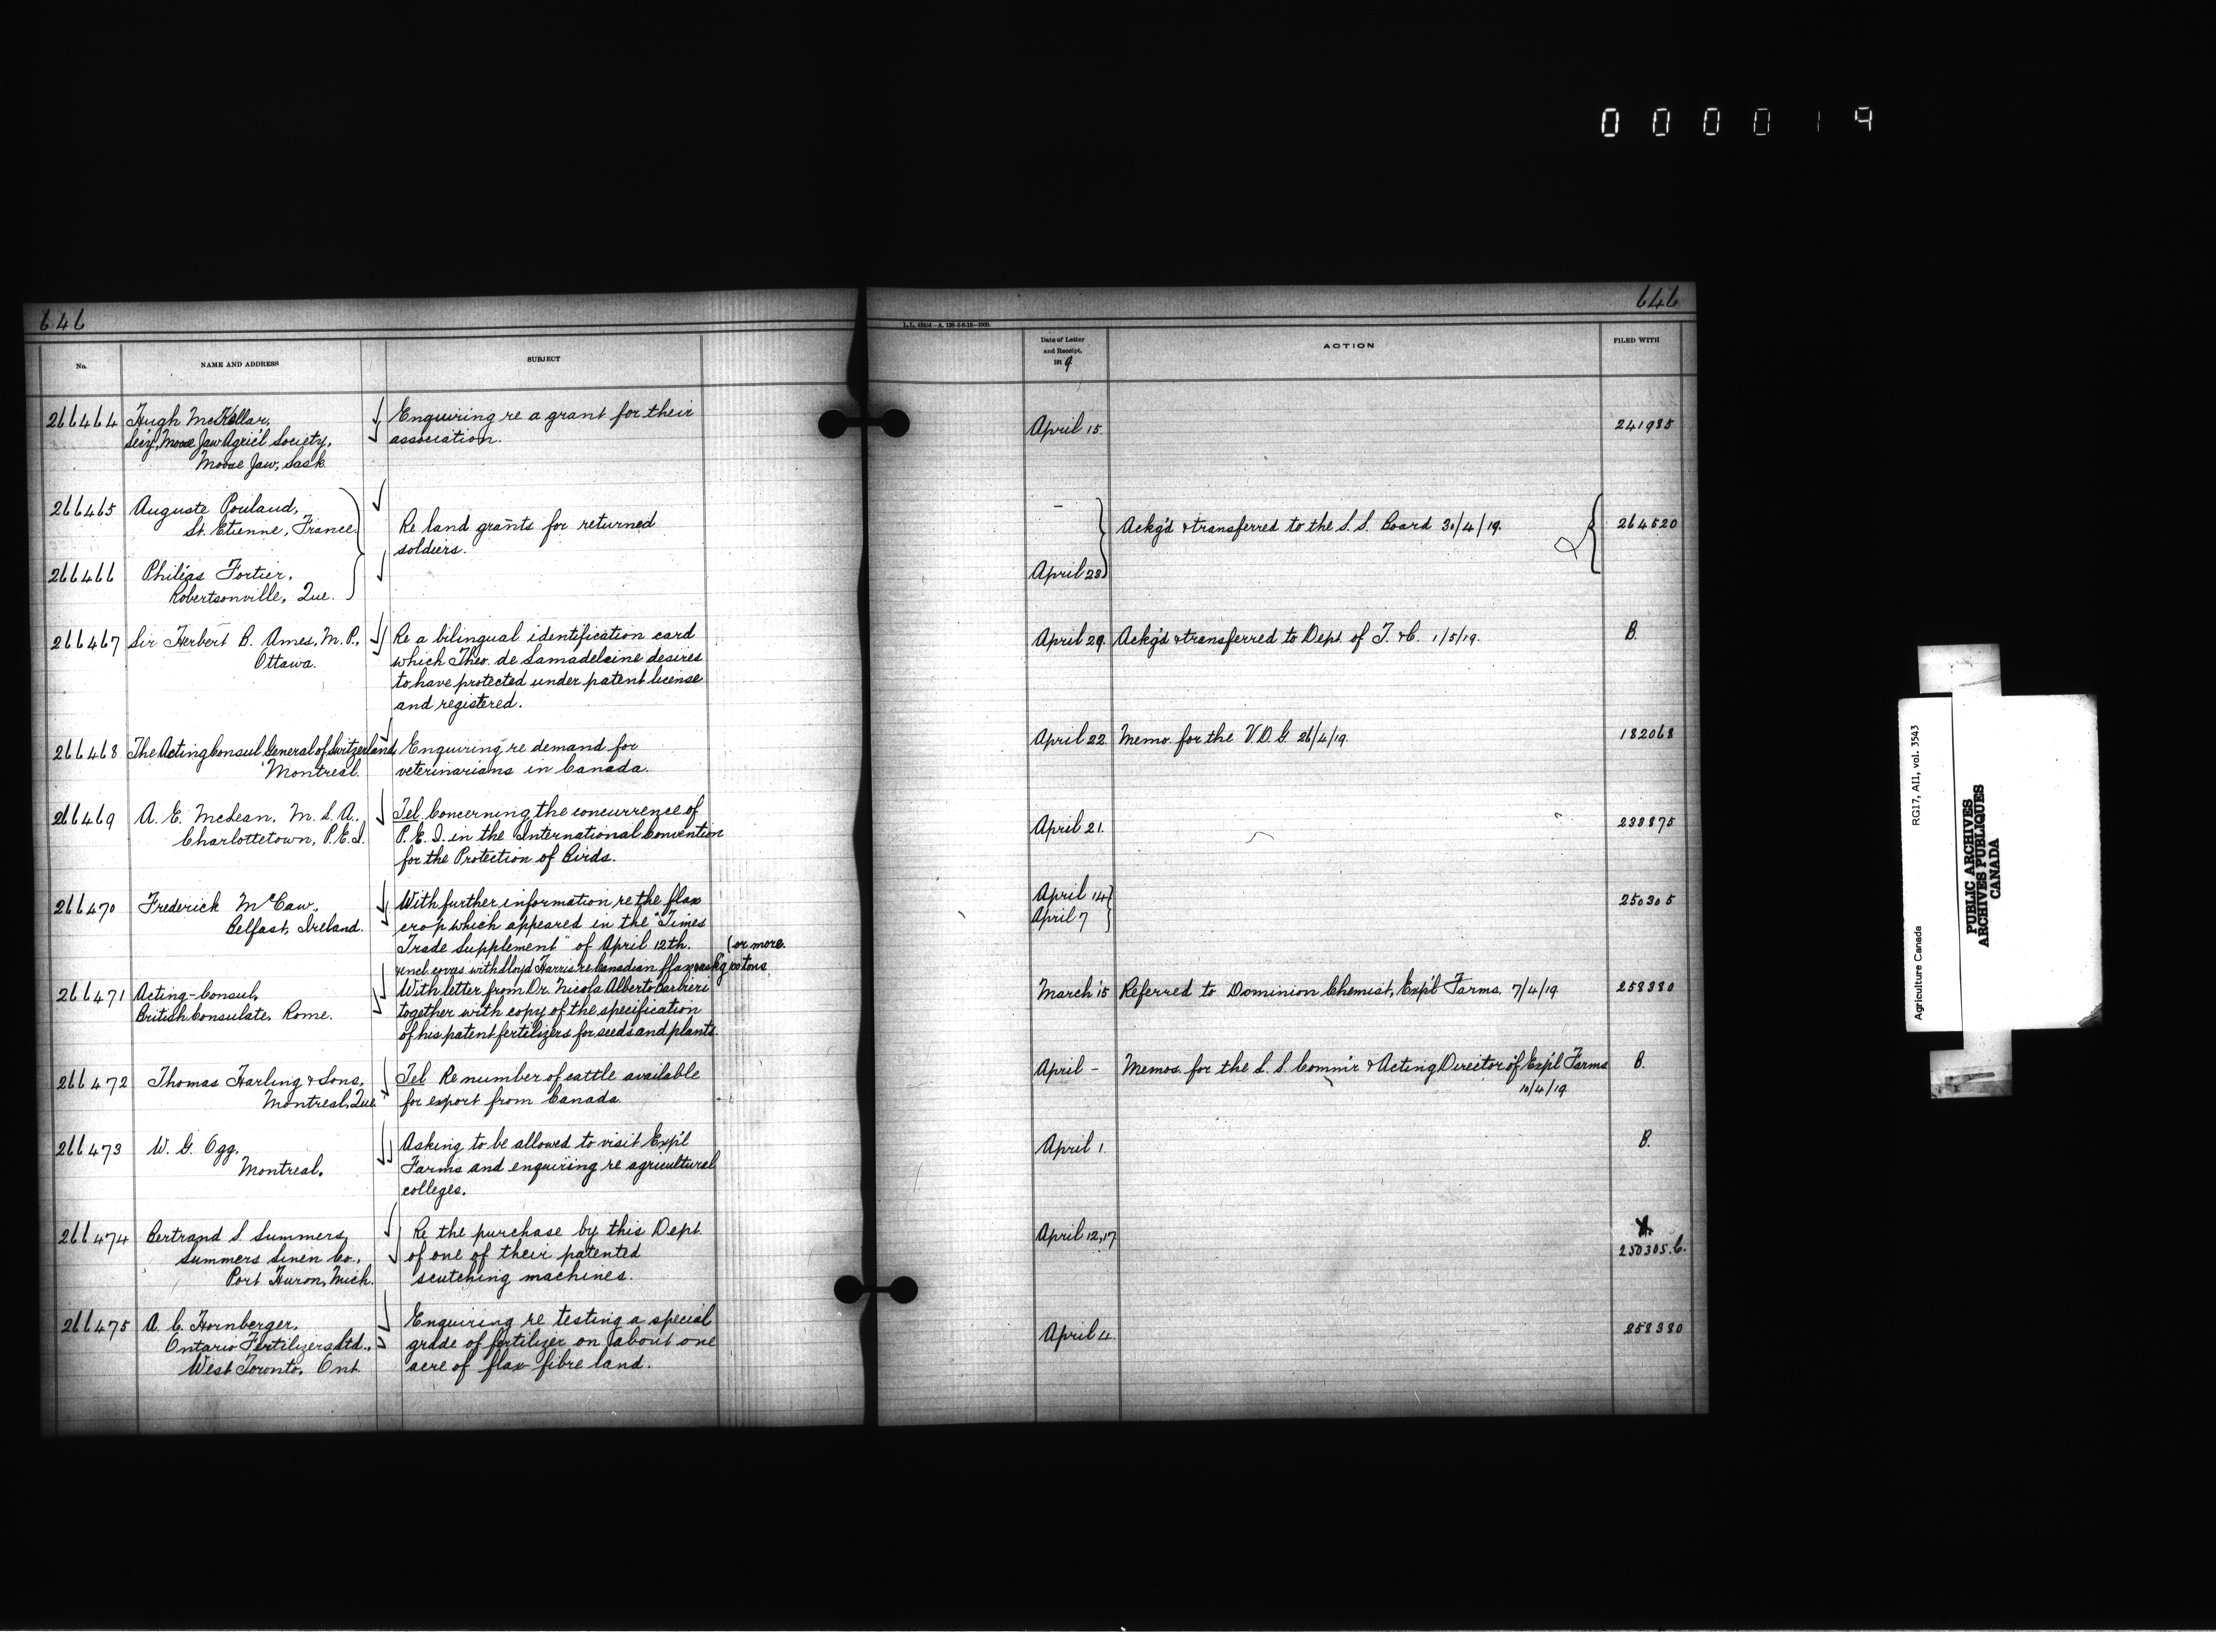 000019
646
646
L.L. 62514—A. 128-3-6-18—2000.
No.
NAME AND ADDRESS
SUBJECT
Date of Letter
and Receipt,
1919
ACTION
FILED WITH
266464
Hugh McKellar,
Sec'y, Moose Jaw Agric'l Society,
Moose Jaw, Sask
Enquiring re a grant for their
association.
April 15.
241985
266465
Auguste Pouland,
St. Etienne, France.
266466
Philéas Fortier,
Robertsonville, Que.
Re land grants for returned
soldiers.
-
April 23
Ackg'd & transferred to the S. S. Board 30/4/19.
264520
266467
Sir Herbert B. Ames, M. P.,
Ottawa.
Re a bilingual identification card
which Theo. de Lamadeleine desires
to have protected under patent license
and registered.
April 29
Ackg'd & transferred to Dept. of T. & C. 1/5/19.
B.
266468
The Acting Consul General of Switzerland
Montreal.
Enquiring re demand for
veterinarians in Canada.
April 22
Memo. for the V. D. G. 26/4/19.
182068
266469
A. E. McLean, M. L. A.,
Charlottetown, P. E. I.
Tel. Concerning the concurrence of
P. E. I. in the International Convention
for the Protection of Birds.
April 21.
233875
266470
Frederick McCaw,
Belfast, Ireland.
With further information re the flax
crop which appeared in the "Times
Trade Supplement" of April 12th. (or more.
&incl. corres. with Lloyd Harris re Canadian flax & askg 100 tons
April 14
April 7
250305
266471
Acting-Consul,
British Consulate, Rome.
With letter from Dr. Nicola Alberto Barbieri
together with copy of the specification
of his patent fertilizers for seeds and plants.
March 15
Referred to Dominion Chemist, Exp'l Farms. 7/4/19
258380
266472
Thomas Harling & Sons,
Montreal, Que.
Tel Re number of cattle available
for export from Canada.
April -
Memos. for the L. S. Comm'r & Acting Director of Exp'l Farms
10/4/19
B.
266473
W. G. Ogg,
Montreal.
Asking to be allowed to visit Exp'l
Farms and enquiring re agricultural
colleges.
April 1.
B.
266474
Bertrand S. Summers,
Summers Linen Co.,
Port Huron, Mich.
Re the purchase by this Dept.
of one of their patented
scutching machines.
April 12, 17
250305.C.
266475
A. C. Hornberger,
Ontario Fertilizers Ltd.,
West Toronto, Ont.
Enquiring re testing a special
grade of fertilizer on about one
acre of flax fibre land.
April 4
258380
Agriculture Canada
RG17, A11, vol. 3543
PUBLIC ARCHIVES
ARCHIVES PUBLIQUES
CANADA